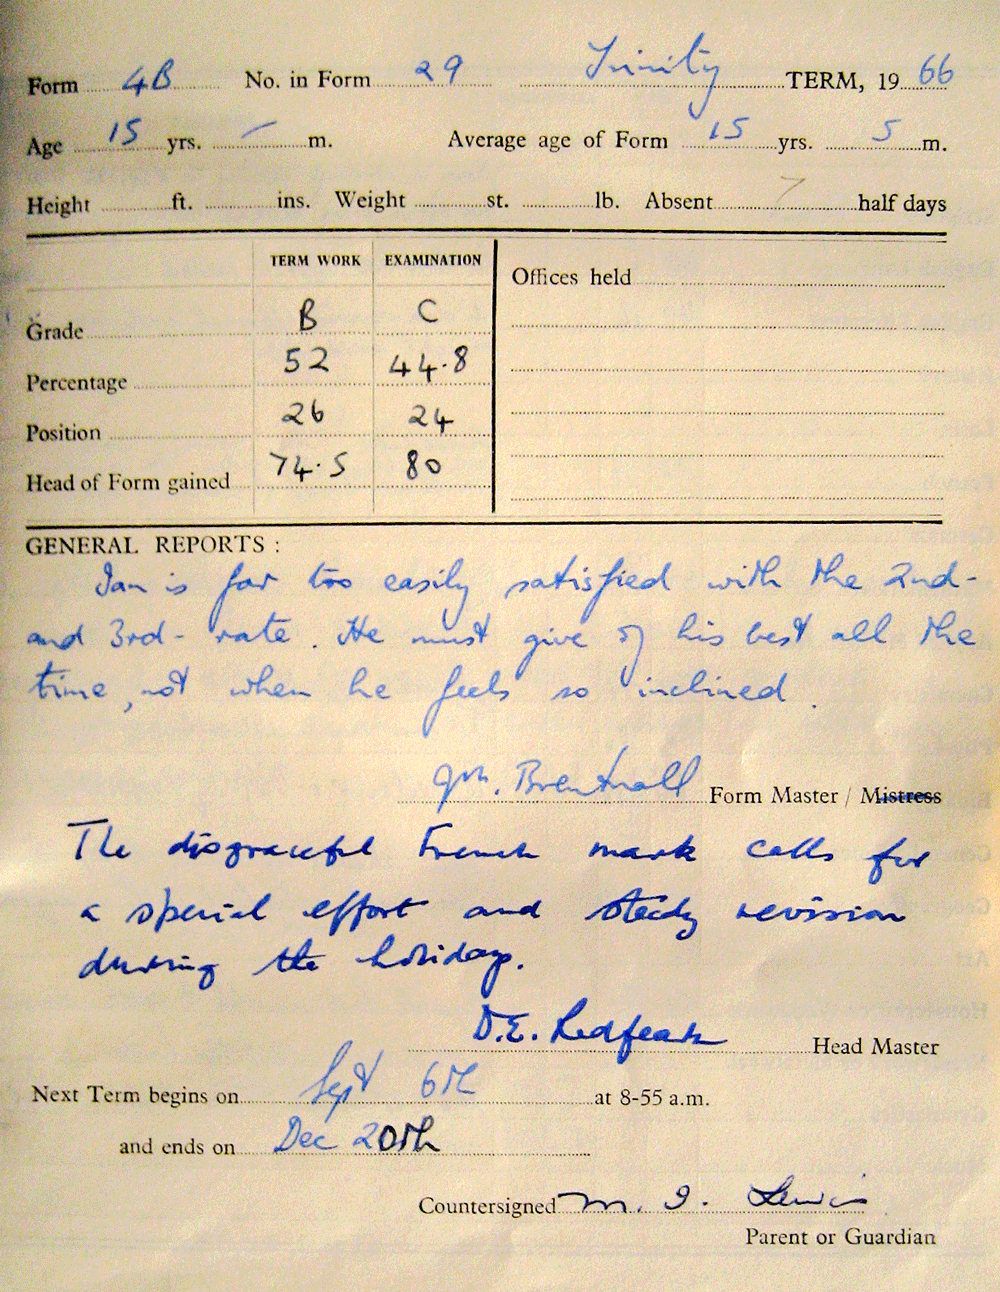 Form 4B No. in Form 29 Trinity TERM, 1966
Age 15 yrs. — m. Average age of Form 15 yrs. 5 m.
Height ft. ins. Weight st. lb. Absent 7 half days
TERM WORK EXAMINATION
Offices held
Grade B C
Percentage 52 44.8
Position 26 24
Head of Form gained 74.5 80
GENERAL REPORTS :
Ian is far too easily satisfied with the 2nd-
and 3rd-rate. He must give of his best all the
time, not when he feels so inclined.
Brentnall Form Master / Mistress
The disgraceful French mark calls for
a special effort and steady revision
during the holidays.
D.E. Redfearn Head Master
Next Term begins on Sept 6th at 8-55 a.m.
and ends on Dec 20th
Countersigned M. I. Lewis
Parent or Guardian